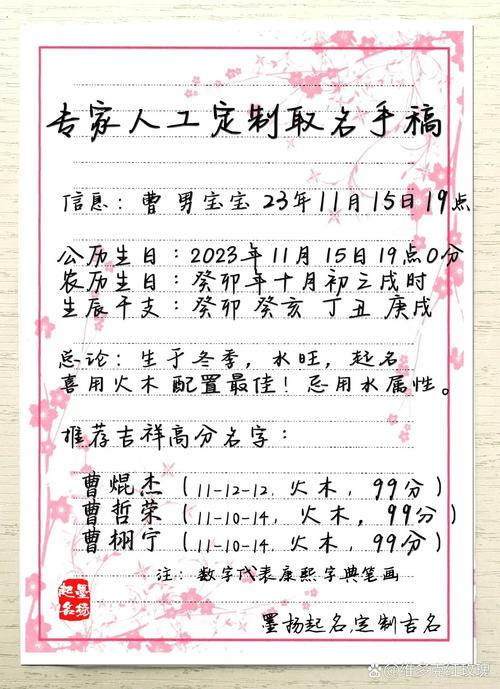 专家人工定制取名手稿
信息：曹 男宝宝 23年11月15日19点
公历生日：2023年11月15日19点0分
农历生日：癸卯年十月初三戌时
生辰干支：癸卯 癸亥 丁丑 庚戌
总论：生于冬季，水旺，起名
喜用火木 配置最佳！忌用水属性。
推荐吉祥高分名字：
曹焜杰（11-12-12，火木，99分）
曹哲荣（11-10-14，火木，99分）
曹栩宁（11-10-14，火木，99分）
注：数字代表康熙字典笔画
墨扬起名
墨扬起名，定制吉名
维多克红玫瑰